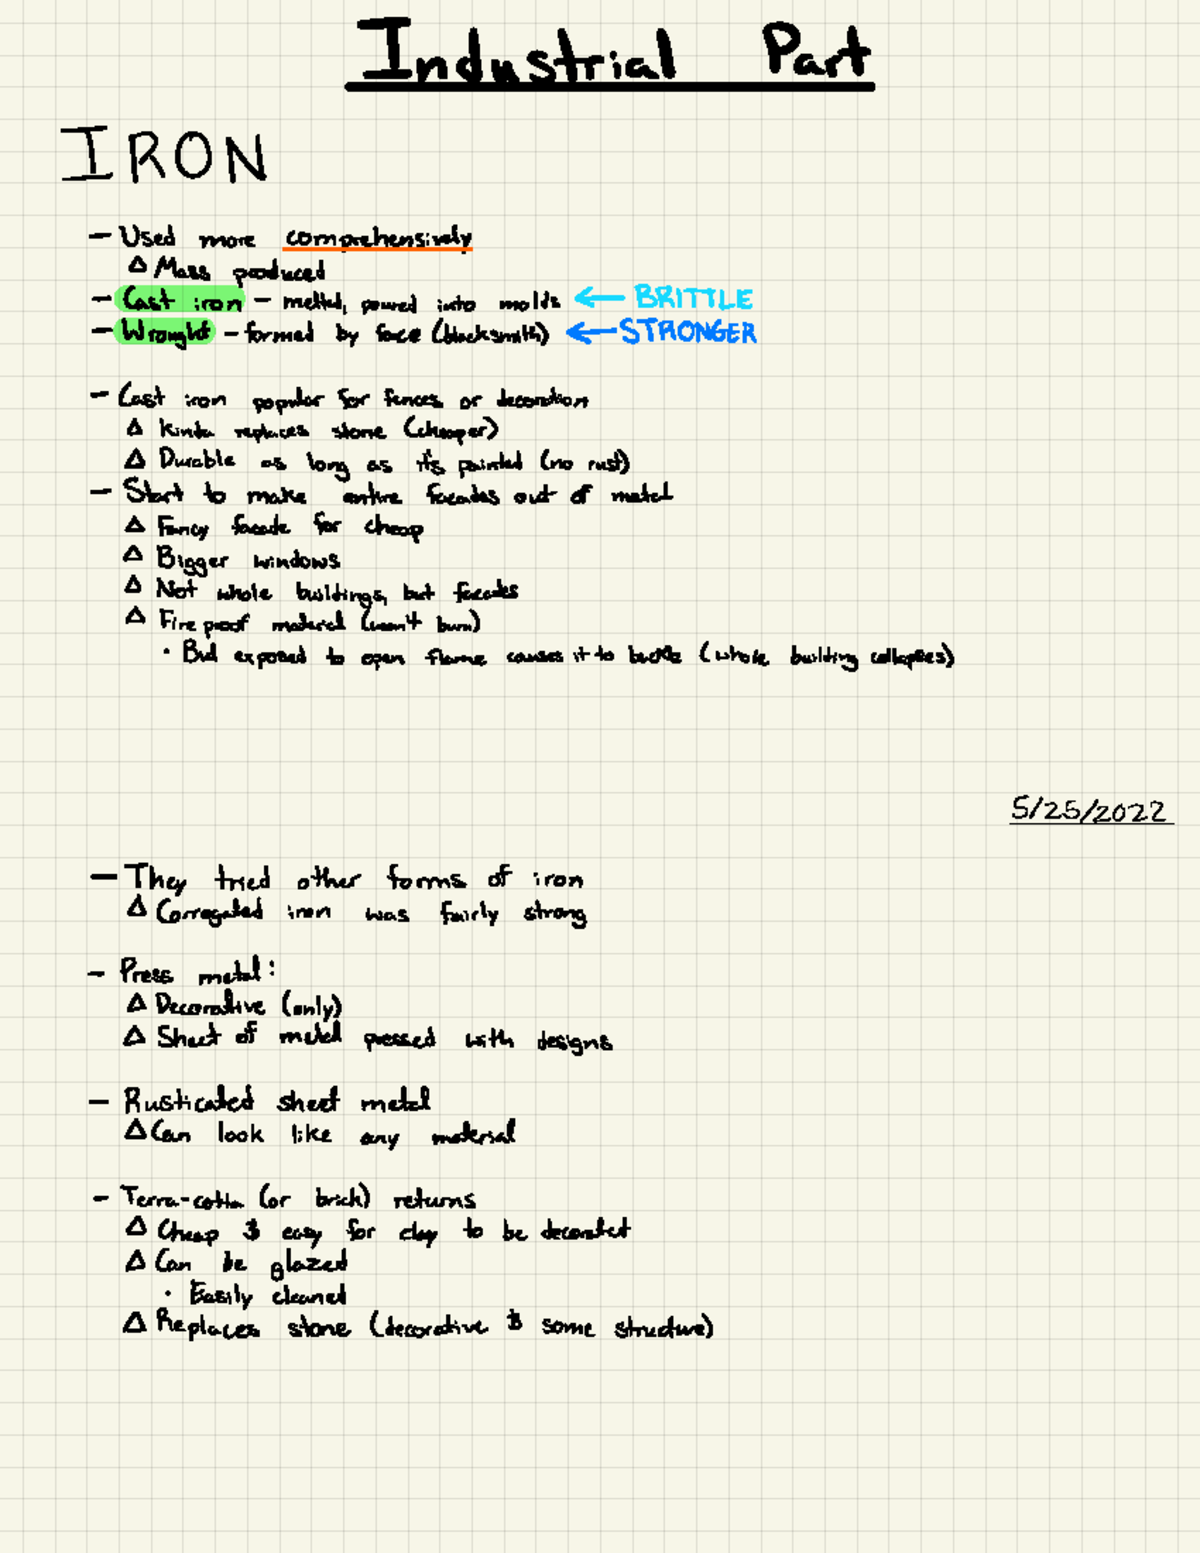 Industrial Part
IRON
— Used more comprehensively
△ Mass produced
— Cast iron — melted, poured into molds ← BRITTLE
— Wrought — formed by force (blacksmith) ← STRONGER
— Cast iron popular for fences or decoration
△ Kinda replaces stone (cheaper)
△ Durable as long as it's painted (no rust)
— Start to make entire facades out of metal
△ Fancy facade for cheap
△ Bigger windows
△ Not whole buildings, but facades
△ Fire proof material (won't burn)
• But exposed to open flame causes it to buckle (whole building collapses)
5/25/2022
— They tried other forms of iron
△ Corrogated iron was fairly strong
— Press metal:
△ Decorative (only)
△ Sheet of metal pressed with designs
— Rusticated sheet metal
△ Can look like any material
— Terra-cotta (or brick) returns
△ Cheap & easy for clay to be decorated
△ Can be glazed
• Easily cleaned
△ Replaces stone (decorative & some structure)